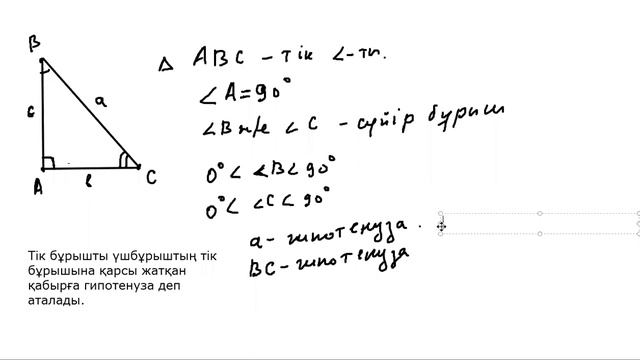 B
с
a
A
в
C
Δ ABC – тік ∠-ты.
∠A=90°
∠B ж/е ∠C – сүйір бұрыш
0°< ∠B< 90°
0°< ∠C< 90°
a – гипотенуза.
BC – гипотенуза
Тік бұрышты үшбұрыштың тік
бұрышына қарсы жатқан
қабырға гипотенуза деп
аталады.